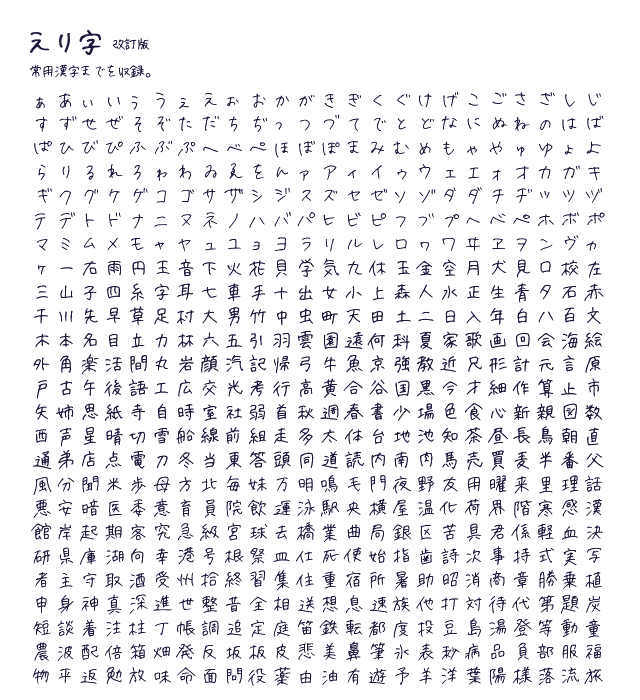 えり字 改訂版
常用漢字までを収録。
ぁ あ ぃ い ぅ う ぇ え ぉ お か が き ぎ く ぐ け げ こ ご さ ざ し じ
す ず せ ぜ そ ぞ た だ ち ぢ っ つ づ て で と ど な に ぬ ね の は ば
ぱ ひ び ぴ ふ ぶ ぷ へ べ ぺ ほ ぼ ぽ ま み む め も ゃ や ゅ ゆ ょ よ
ら り る れ ろ ゎ わ ゐ ゑ を ん ァ ア ィ イ ゥ ウ ェ エ ォ オ カ ガ キ
ギ ク グ ケ ゲ コ ゴ サ ザ シ ジ ス ズ セ ゼ ソ ゾ タ ダ チ ヂ ッ ツ ヅ
テ デ ト ド ナ ニ ヌ ネ ノ ハ バ パ ヒ ビ ピ フ ブ プ ヘ ベ ペ ホ ボ ポ
マ ミ ム メ モ ャ ヤ ュ ユ ョ ヨ ラ リ ル レ ロ ヮ ワ ヰ ヱ ヲ ン ヴ ヵ
ヶ 一 右 雨 円 王 音 下 火 花 貝 学 気 九 休 玉 金 空 月 犬 見 口 校 左
三 山 子 四 糸 字 耳 七 車 手 十 出 女 小 上 森 人 水 正 生 青 夕 石 赤
千 川 先 早 草 足 村 大 男 竹 中 虫 町 天 田 土 二 日 入 年 白 八 百 文
木 本 名 目 立 力 林 六 五 引 羽 雲 園 遠 何 科 夏 家 歌 画 回 会 海 絵
外 角 楽 活 間 丸 岩 顔 汽 記 帰 弓 牛 魚 京 強 教 近 兄 形 計 元 言 原
戸 古 午 後 語 工 広 交 光 考 行 高 黄 合 谷 国 黒 今 才 細 作 算 止 市
矢 姉 思 紙 寺 自 時 室 社 弱 首 秋 週 春 書 少 場 色 食 心 新 親 図 数
西 声 星 晴 切 雪 船 線 前 組 走 多 太 体 台 地 池 知 茶 昼 長 鳥 朝 直
通 弟 店 点 電 刀 冬 当 東 答 頭 同 道 読 内 南 肉 馬 売 買 麦 半 番 父
風 分 聞 米 歩 母 方 北 毎 妹 万 明 鳴 毛 門 夜 野 友 用 曜 来 里 理 話
悪 安 暗 医 委 意 育 員 院 飲 運 泳 駅 央 横 屋 温 化 荷 界 階 寒 感 漢
館 岸 起 期 客 究 急 級 宮 球 去 橋 業 曲 局 銀 区 苦 具 君 係 軽 血 決
研 県 庫 湖 向 幸 港 号 根 祭 皿 仕 死 使 始 指 歯 詩 次 事 持 式 実 写
者 主 守 取 酒 受 州 拾 終 習 集 住 重 宿 所 暑 助 昭 消 商 章 勝 乗 植
申 身 神 真 深 進 世 整 昔 全 相 送 想 息 速 族 他 打 対 待 代 第 題 炭
短 談 着 注 柱 丁 帳 調 追 定 庭 笛 鉄 転 都 度 投 豆 島 湯 登 等 動 童
農 波 配 倍 箱 畑 発 反 坂 板 皮 悲 美 鼻 筆 氷 表 秒 病 品 負 部 服 福
物 平 返 勉 放 味 命 面 問 役 薬 由 油 有 遊 予 羊 洋 葉 陽 様 落 流 旅